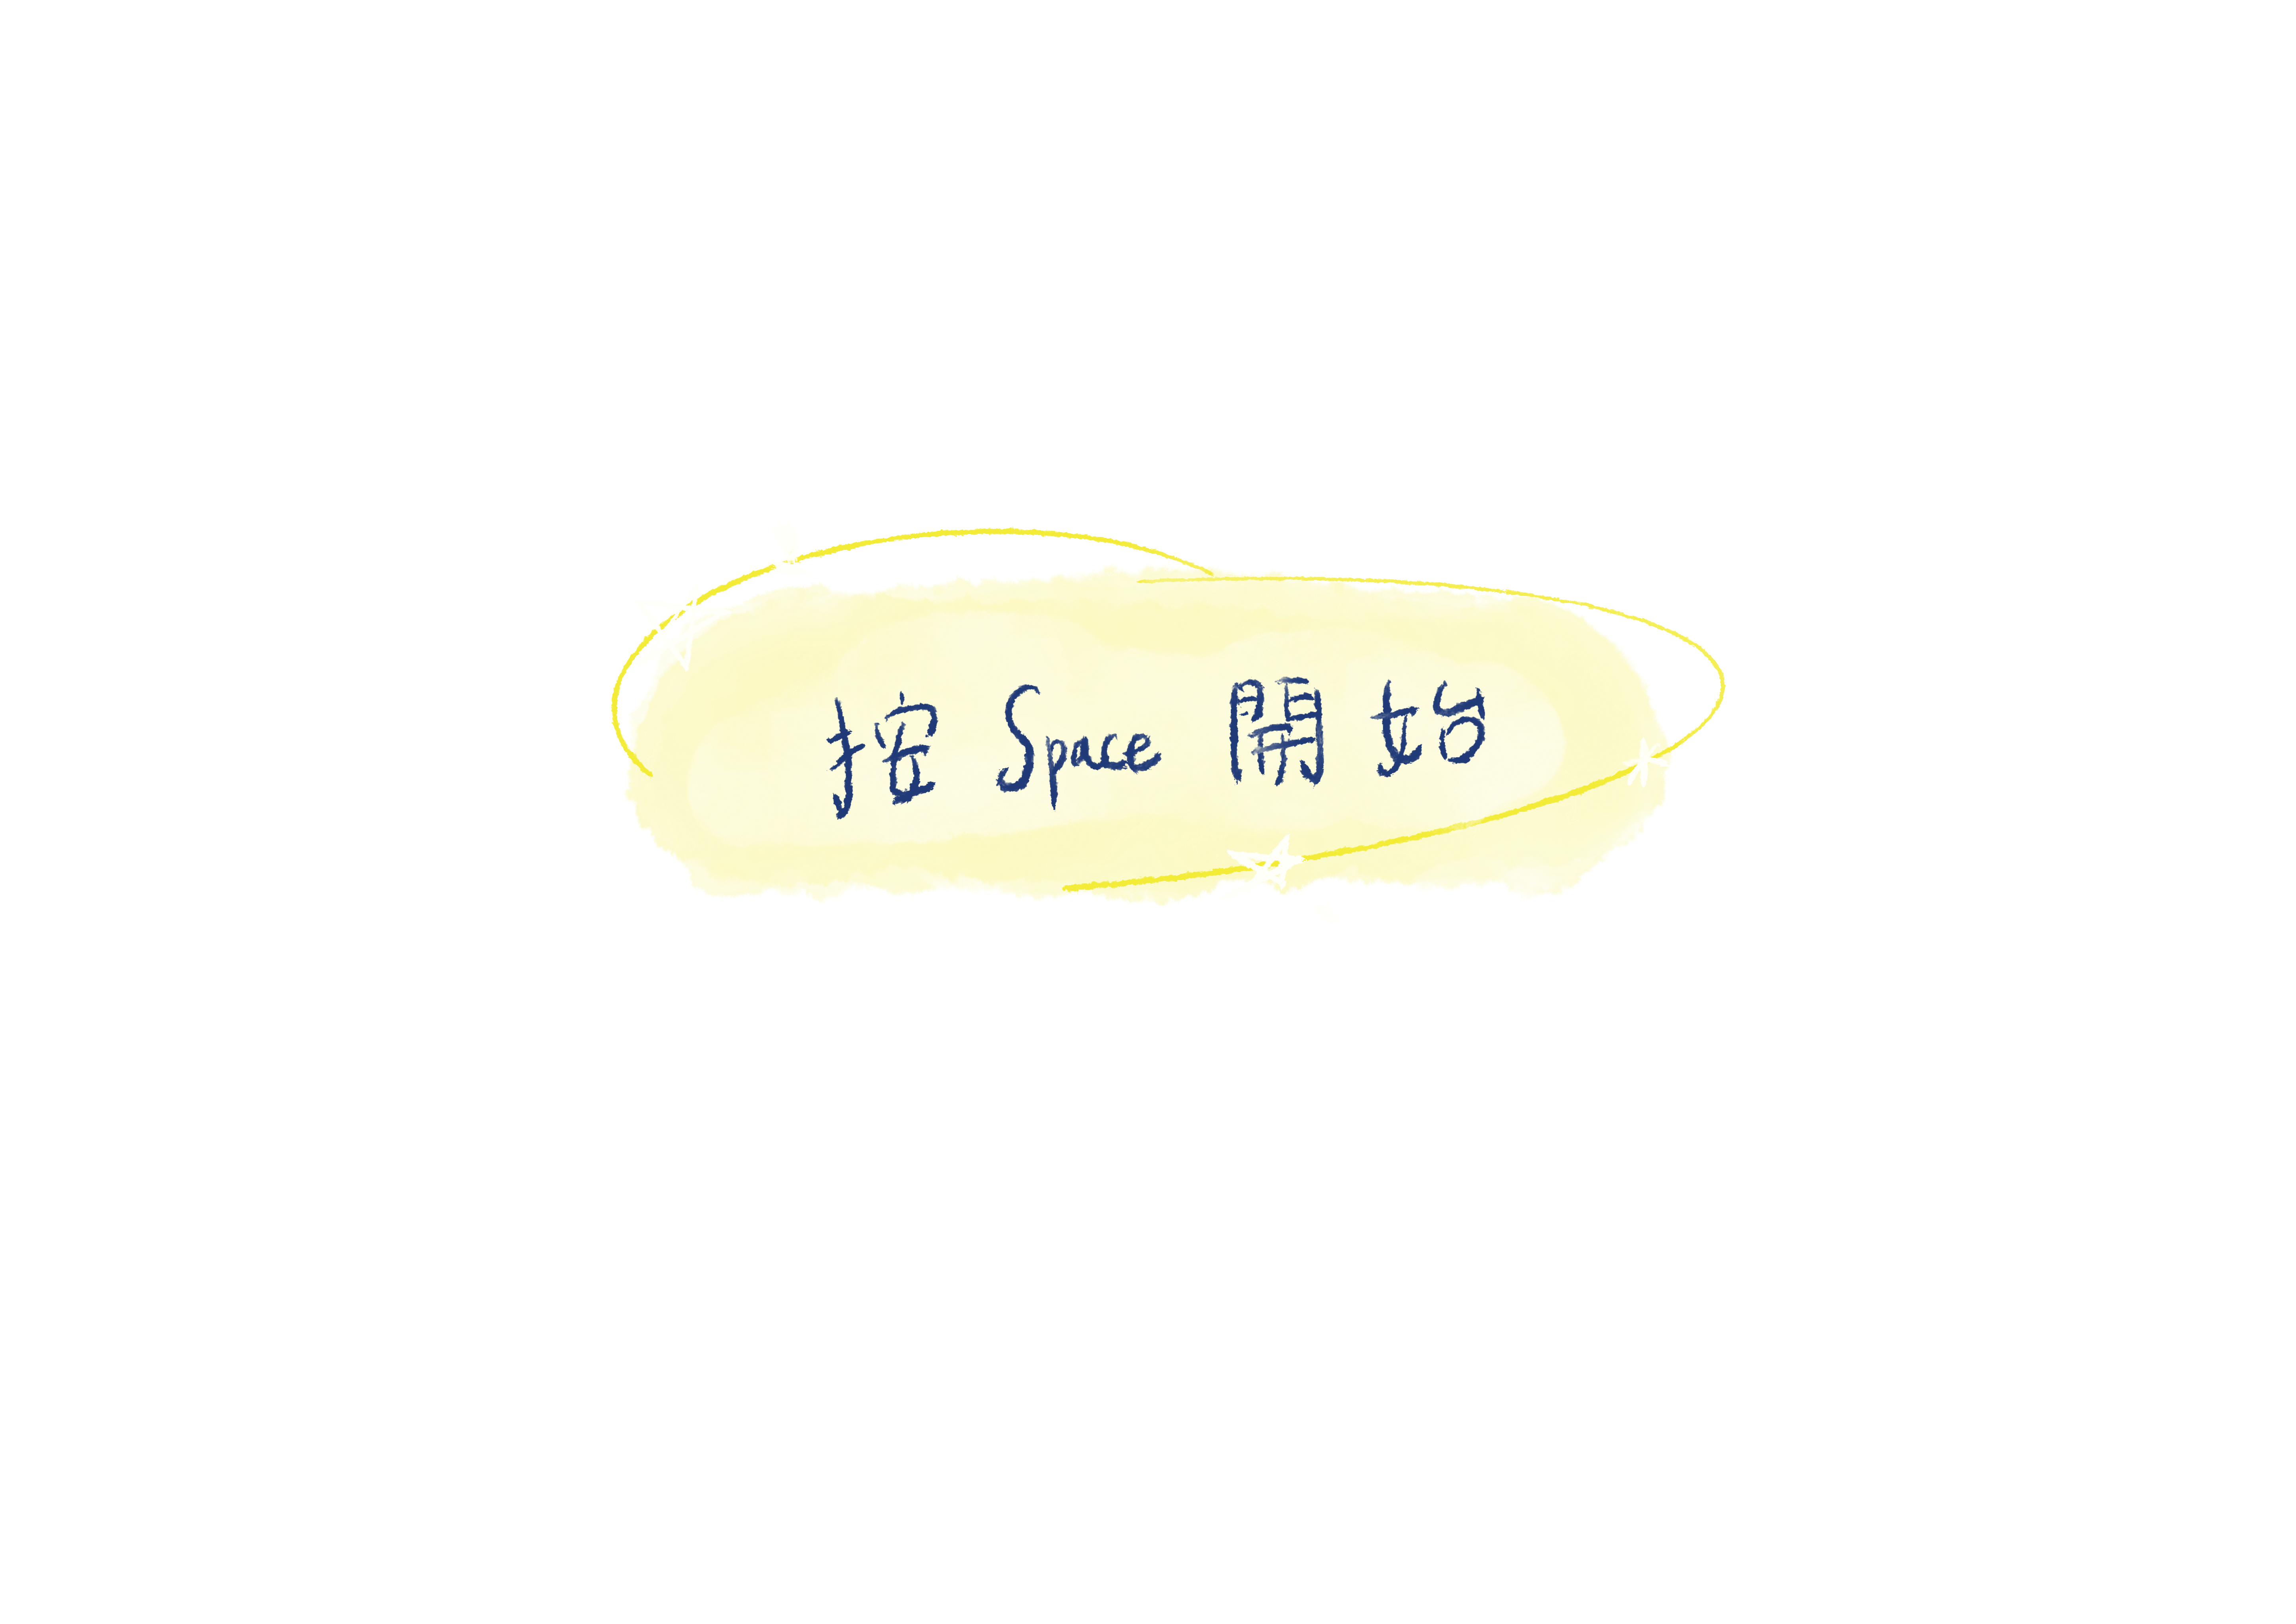 按 Space 開始